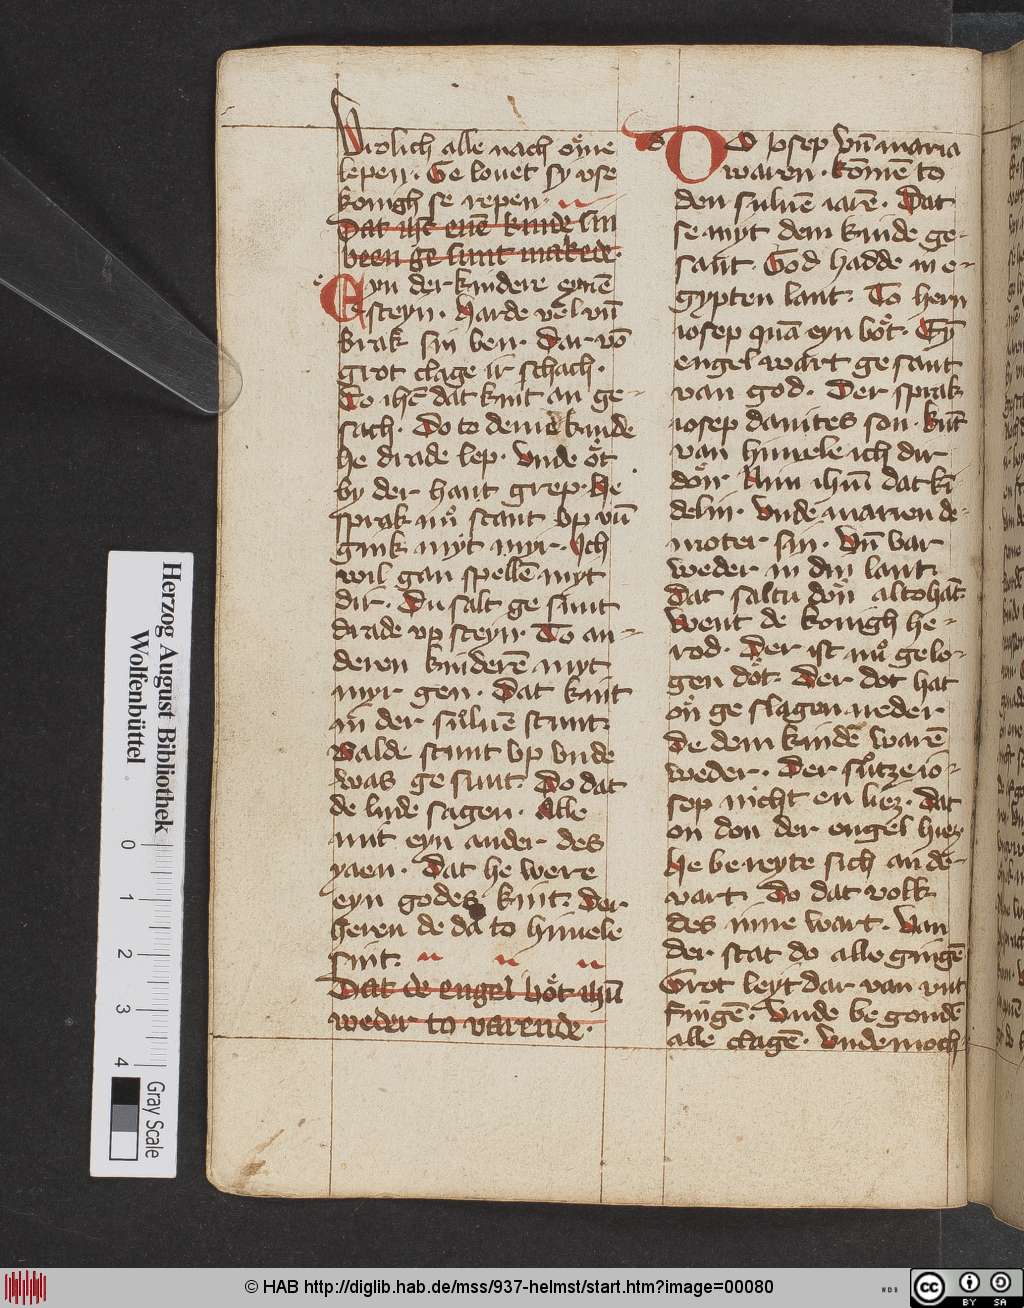 Vrolich alle nach oͤme
lepen. Ge louet sy vse
konigh se repen.
Dat ihc enē kinde sin
been ge sunt makede.
Eyn der kindere eynē
steyn. Harde vel vn̄
brak sin ben. Dar vō
grot clage ir schach.
Do ihc̄ dat kint an ge-
sach. Do to deme kinde
he drade lep. Vnde oͤt
by der hant grep. He
sprak nuͦ stant vp vn̄
gink myt myr. Ich
wil gan spellē myt
dir. Du salt ge sunt
drade vp steyn. To an-
deren kinderē myt
myr gen. Dat kint
in der suluē stunt
Balde stunt vp vnde
was ge sunt. Do dat
de lude sagen. Alle
mit eyn ander des
yaen. Dat he were
eyn godes kint. Der
heren de da to himele
sint.
Dat de engel boͤt ihūm
weder to varende.
DO Josep vn̄ maria
waren. komē to
den suluē iarē. Dat
se myt dem kinde ge-
sant. God hadde in e-
gypten lant. To hern
iosep quā eyn boͤt. Eyn̄
engel wart ge sant
van god. Der sprak
iosep dauites son. kunt
van himele ich dir
doͤn. Nim ihūm dat kī
delin. Vnde marien de
moter sin. Vn̄ var
weder in din lant.
Dat saltu doͤn altohāt.
Went de konigh he-
rod. Der ist nuͦ gelo-
gen doͤt. Der dot hat
oͤn ge slagen neder
De dem kindē warē
weder. Der slutze io-
sep nicht en liez. Dat
on don der engel hiez
He be reyte sich an de-
vart. Do dat volk
des inne wart. Van
der stat do alle gingē
Grot leyt dar van unt
fingē. Vnde be gondē
alle clagē. Vnde moch-
Herzog August Bibliothek
Wolfenbüttel
0 1 2 3 4
Gray Scale
© HAB http://diglib.hab.de/mss/937-helmst/start.htm?image=00080
WDB
cc BY SA